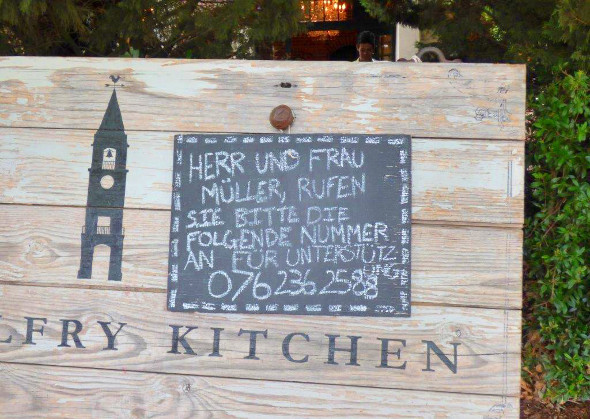 HERR UND FRAU
MÜLLER, RUFEN
SIE BITTE DIE
FOLGENDE NUMMER
AN FÜR UNTERSTÜTZ
UNG
076 236 2588
LFRY KITCHEN